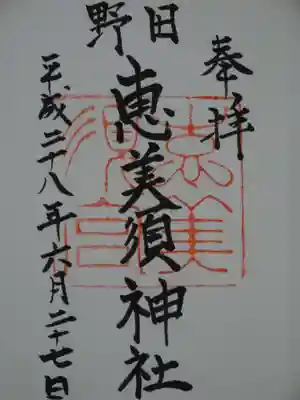 奉拝
日野
恵美須神社
平成二十八年六月二十七日
恵美須宮